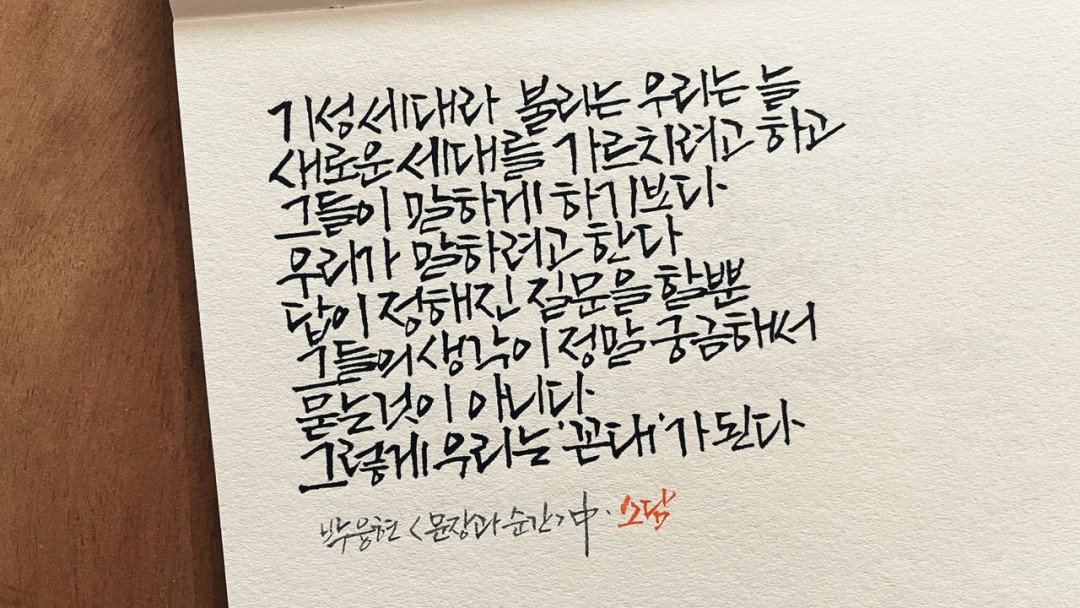 기성세대라 불리는 우리는 늘
새로운 세대를 가르치려고 하고
그들이 말하게 하기보다
우리가 말하려고 한다
답이 정해진 질문을 할뿐
그들의 생각이 정말 궁금해서
묻는것이 아니다
그렇게 우리는 '꼰대'가 된다
박웅현 <문장과 순간> 中. 소담